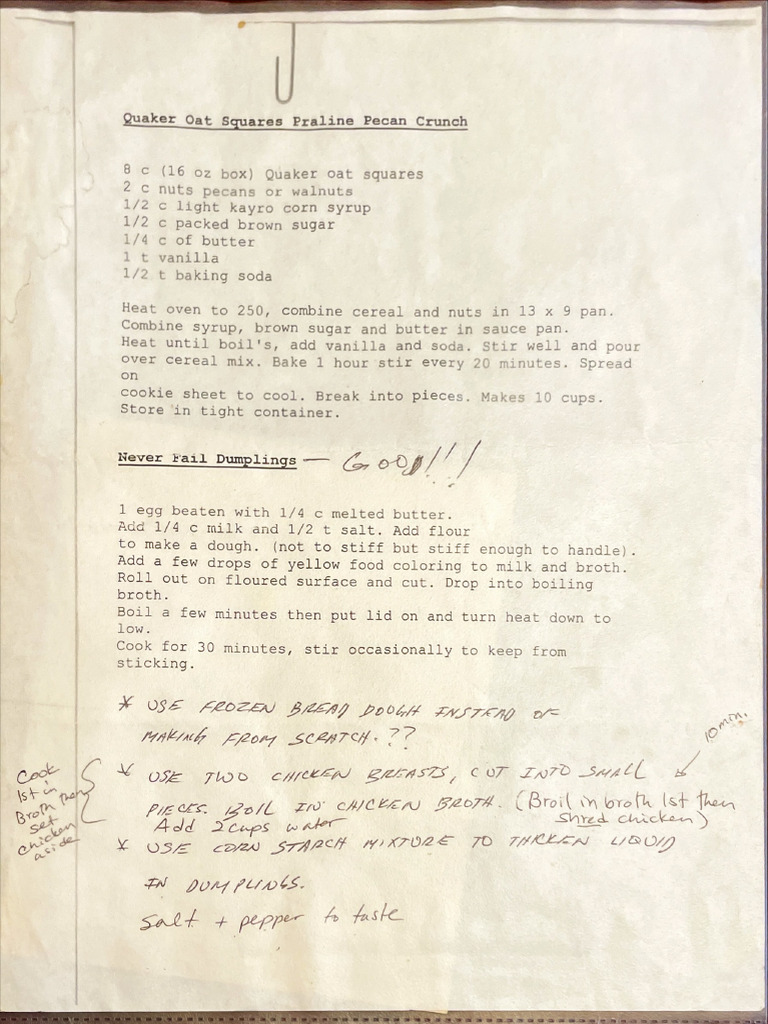 Quaker Oat Squares Praline Pecan Crunch
8 c (16 oz box) Quaker oat squares
2 c nuts pecans or walnuts
1/2 c light kayro corn syrup
1/2 c packed brown sugar
1/4 c of butter
1 t vanilla
1/2 t baking soda
Heat oven to 250, combine cereal and nuts in 13 x 9 pan.
Combine syrup, brown sugar and butter in sauce pan.
Heat until boil's, add vanilla and soda. Stir well and pour
over cereal mix. Bake 1 hour stir every 20 minutes. Spread
on
cookie sheet to cool. Break into pieces. Makes 10 cups.
Store in tight container.
Never Fail Dumplings — GOOD!!!
1 egg beaten with 1/4 c melted butter.
Add 1/4 c milk and 1/2 t salt. Add flour
to make a dough. (not to stiff but stiff enough to handle).
Add a few drops of yellow food coloring to milk and broth.
Roll out on floured surface and cut. Drop into boiling
broth.
Boil a few minutes then put lid on and turn heat down to
low.
Cook for 30 minutes, stir occasionally to keep from
sticking.
* USE FROZEN BREAD DOUGH INSTEAD OF
MAKING FROM SCRATCH.??
10 min.
Cook
1st in
Broth then
set
chicken
aside
* USE TWO CHICKEN BREASTS, CUT INTO SMALL
PIECES. BOIL IN CHICKEN BROTH. (Broil in broth 1st then
shred chicken)
Add 2 cups water
* USE CORN STARCH MIXTURE TO THICKEN LIQUID
IN DUMPLINGS.
Salt + pepper to taste